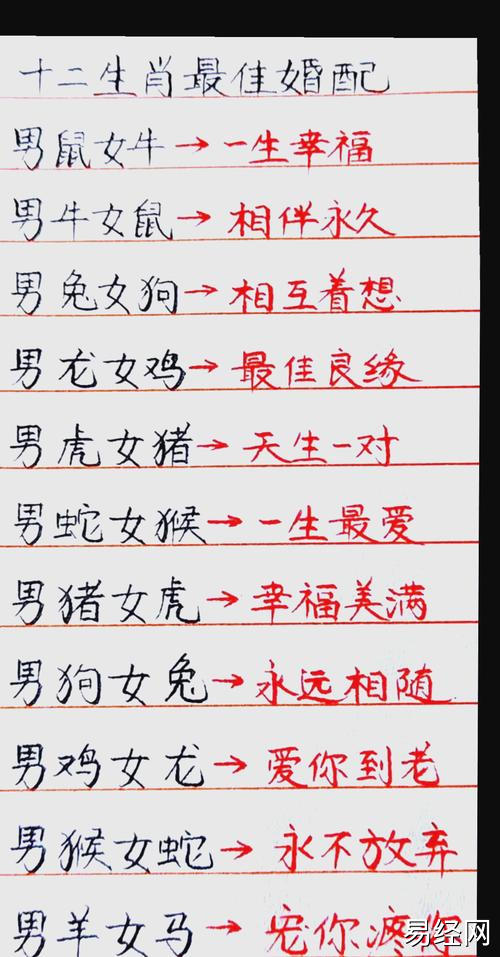 十二生肖最佳婚配
男鼠女牛→一生幸福
男牛女鼠→相伴永久
男兔女狗→相互着想
男龙女鸡→最佳良缘
男虎女猪→天生一对
男蛇女猴→一生最爱
男猪女虎→幸福美满
男狗女兔→永远相随
男鸡女龙→爱你到老
男猴女蛇→永不放弃
男羊女马→宠你疼你
易经网